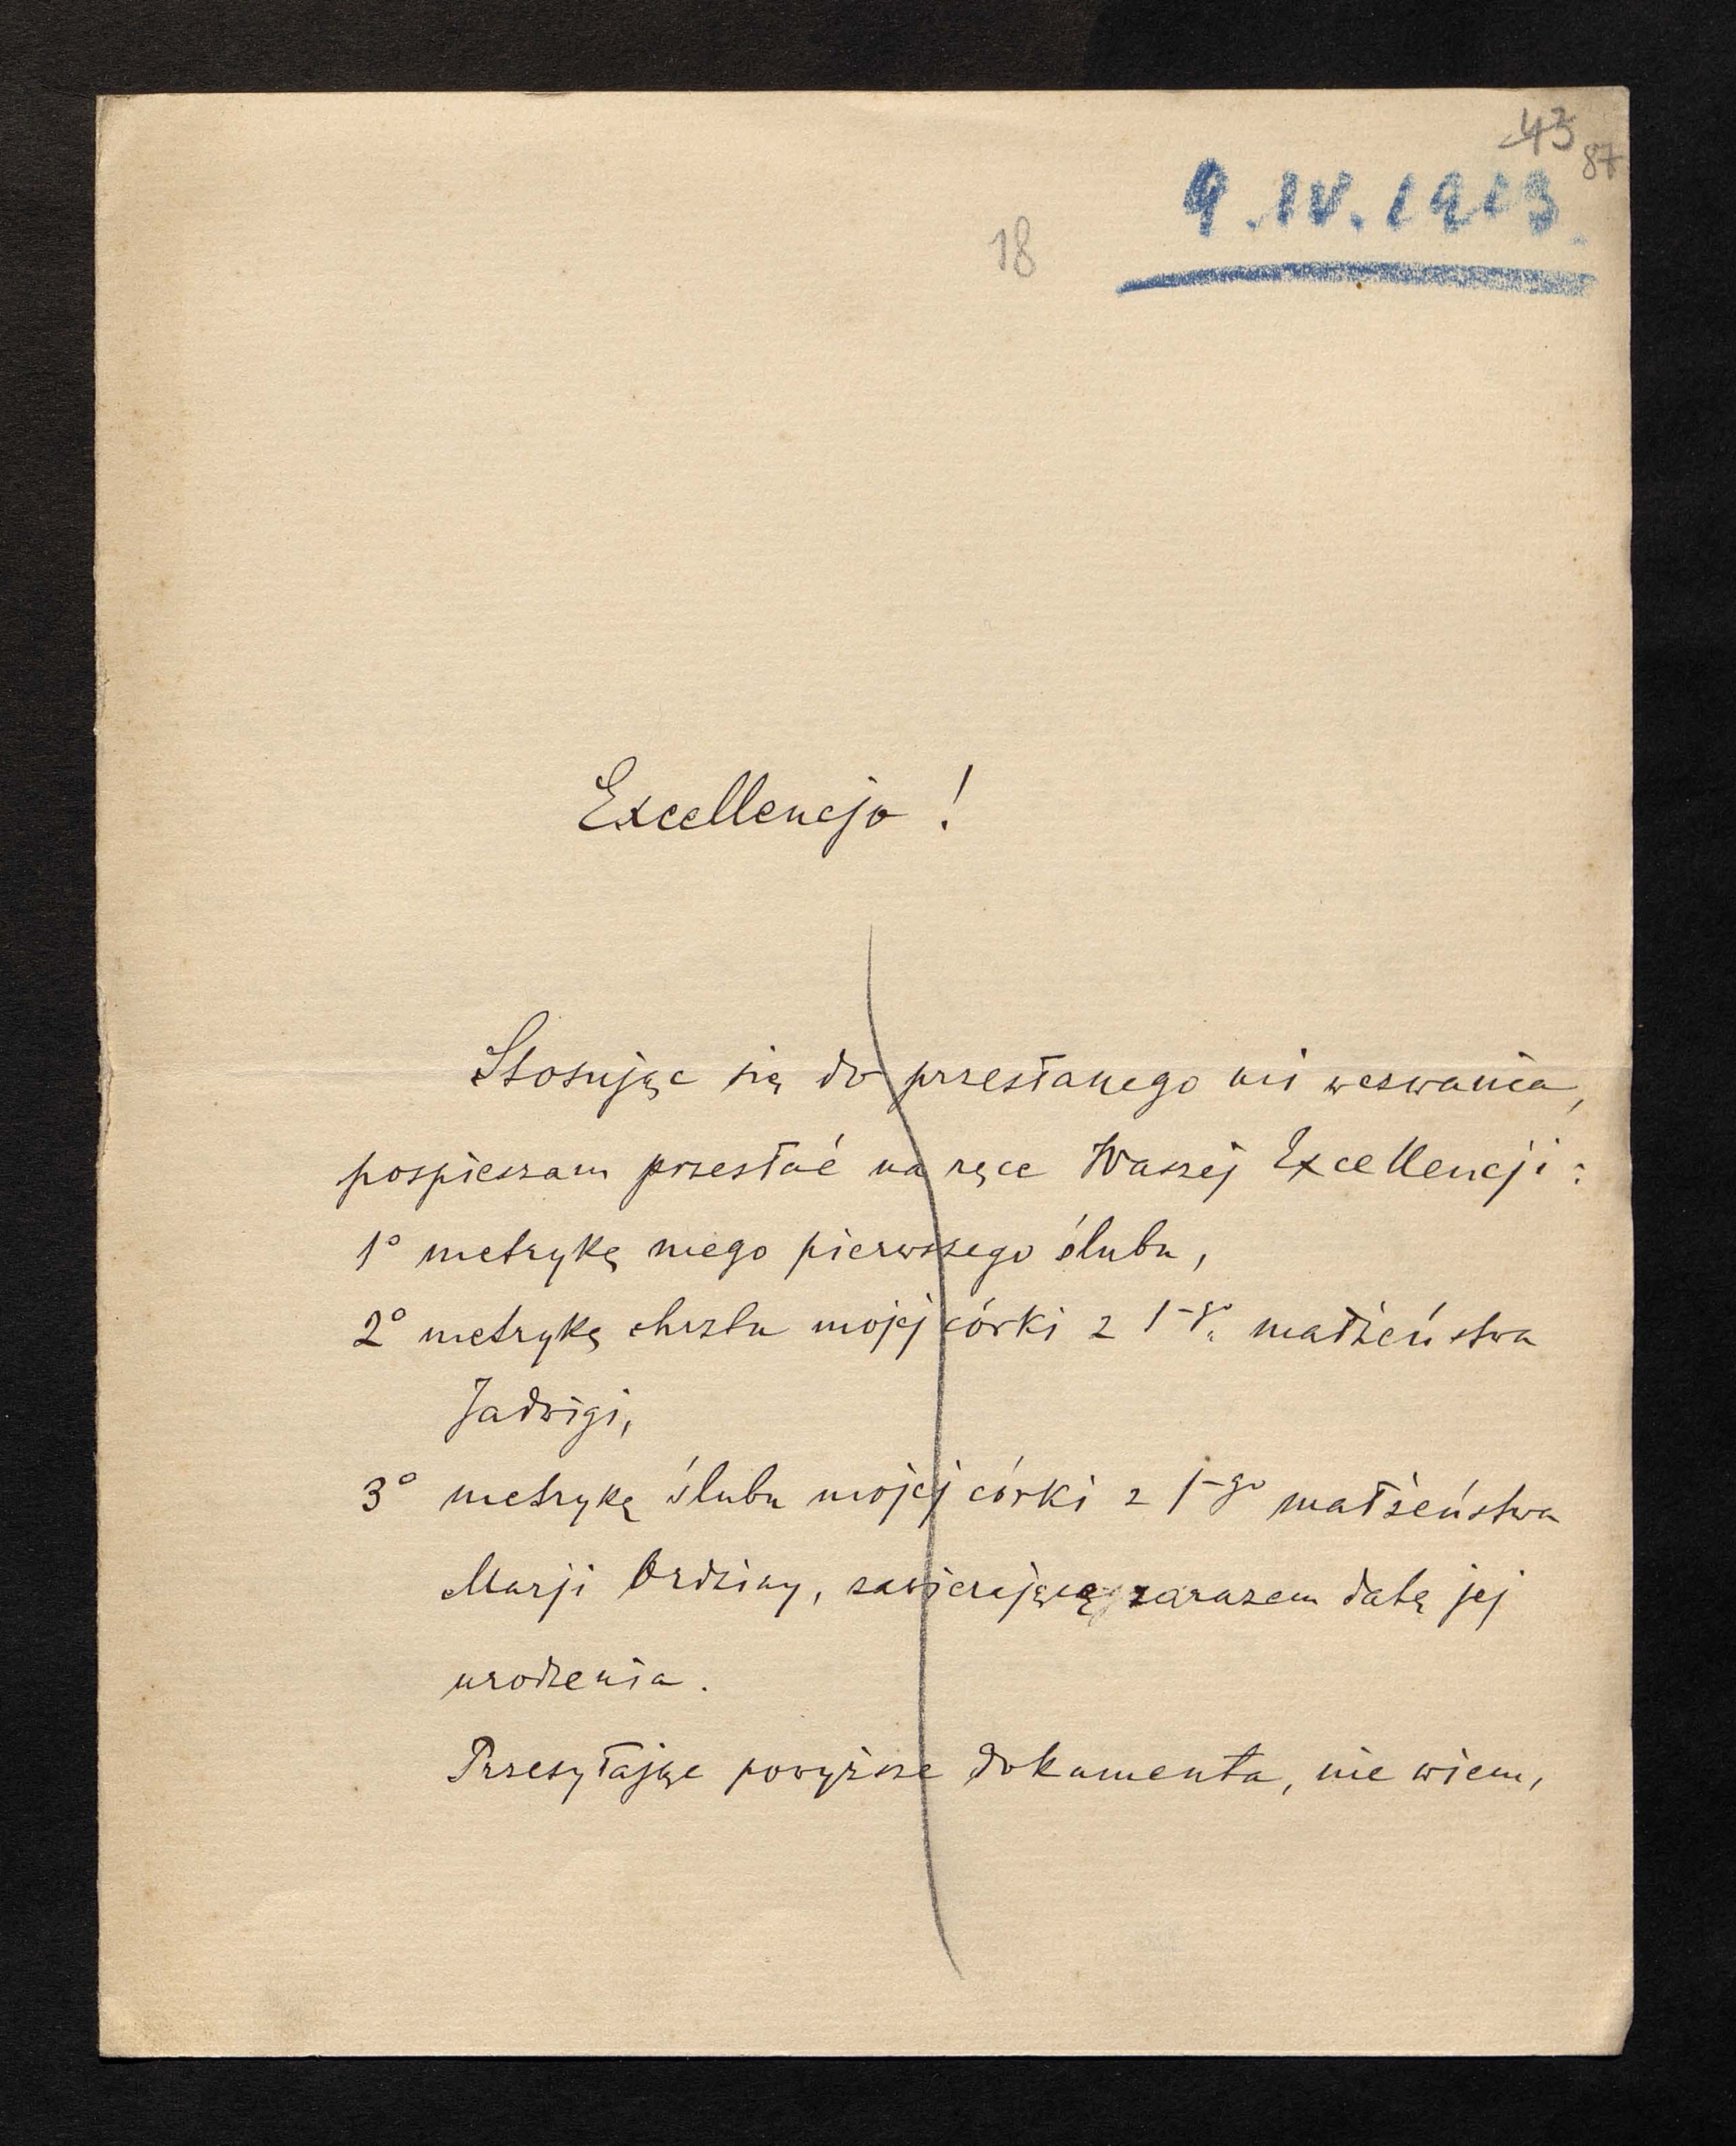 43
87
9.IV.1913.
18
Excellencjo !
Stosując się do przesłanego mi wezwania,
pospieszam przesłać na ręce Waszej Excellencji :
1° metrykę mego pierwszego ślubu,
2° metrykę chrztu mojej córki z 1-go małżeństwa
Jadwigi,
3° metrykę ślubu mojej córki z 1-go małżeństwa
Marji Ordziny, zawierającą zarazem datę jej
urodzenia.
Przesyłając powyższe dokumenta, nie wiem,